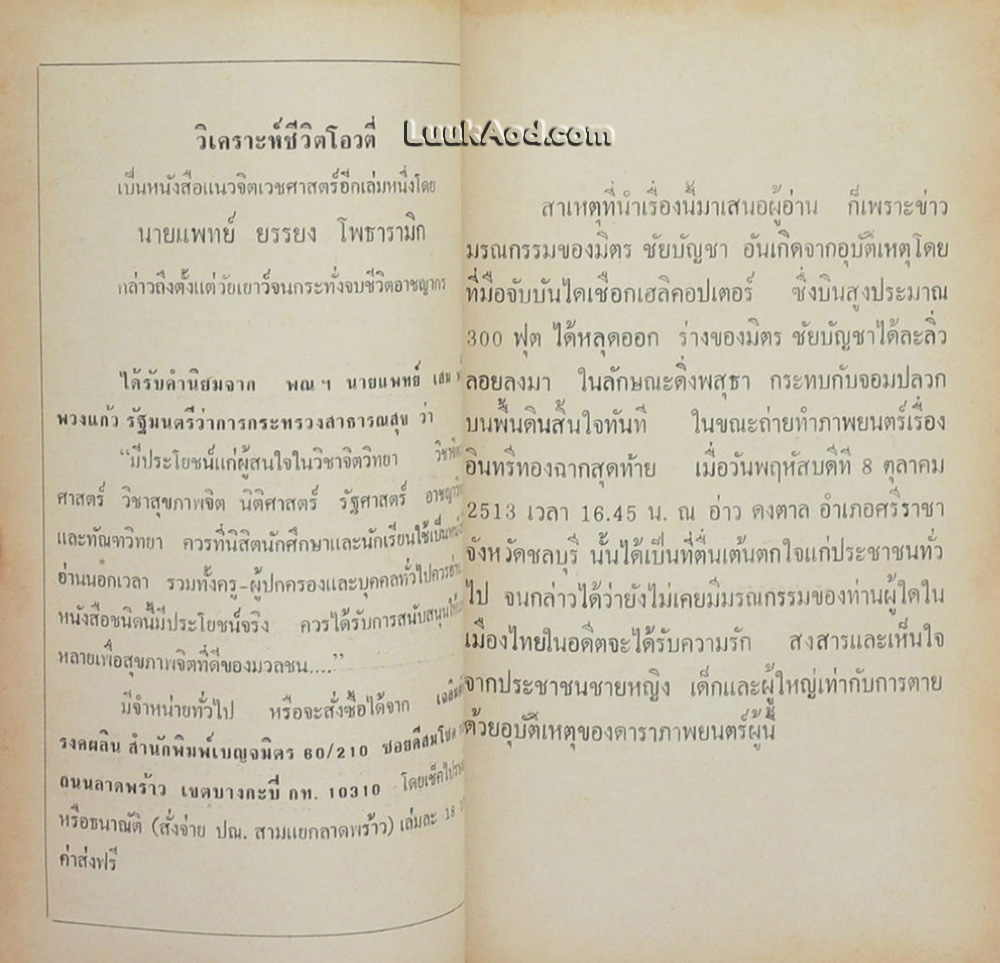 วิเคราะห์ชีวิตโอวตี่
LuukAod.com
เป็นหนังสือแนวจิตเวชศาสตร์อีกเล่มหนึ่งโดย
นายแพทย์ ยรรยง โพธารามิก
กล่าวถึงตั้งแต่วัยเยาว์จนกระทั่งจบชีวิตอาชญากร
ได้รับคำนิยมจาก พณฯ นายแพทย์ เสม
พวงแก้ว รัฐมนตรีว่าการกระทรวงสาธารณสุข ว่า
“มีประโยชน์แก่ผู้สนใจในวิชาจิตวิทยา
ศาสตร์ วิชาสุขภาพจิต นิติศาสตร์ รัฐศาสตร์
และทัณฑวิทยา ควรที่นิสิตนักศึกษาและนักเรียนใช้เป็น
อ่านนอกเวลา รวมทั้งครู-ผู้ปกครองและบุคคลทั่วไปควร
หนังสือชนิดนี้มีประโยชน์จริง ควรได้รับการสนับสนุน
หลายเพื่อสุขภาพจิตที่ดีของมวลชน....”
มีจำหน่ายทั่วไป หรือจะสั่งซื้อได้จาก
รงคผลิน สำนักพิมพ์เบญจมิตร 60/210 ซอยดีสมโชค
ถนนลาดพร้าว เขตบางกะปิ กท. 10310 โดยเช็ค
หรือธนาณัติ (สั่งจ่าย ปณ. สามแยกลาดพร้าว) เล่มละ 18
ค่าส่งฟรี
สาเหตุที่นำเรื่องนี้มาเสนอผู้อ่าน ก็เพราะข่าว
มรณกรรมของมิตร ชัยบัญชา อันเกิดจากอุบัติเหตุโดย
ที่มือจับบันไดเชือกเฮลิคอปเตอร์ ซึ่งบินสูงประมาณ
300 ฟุต ได้หลุดออก ร่างของมิตร ชัยบัญชาได้ละลิ่ว
ลอยลงมา ในลักษณะดิ่งพสุธา กระทบกับจอมปลวก
บนพื้นดินสิ้นใจทันที ในขณะถ่ายทำภาพยนตร์เรื่อง
อินทรีทองฉากสุดท้าย เมื่อวันพฤหัสบดีที่ 8 ตุลาคม
2513 เวลา 16.45 น. ณ อ่าว ดงตาล อำเภอศรีราชา
จังหวัดชลบุรี นั้นได้เป็นที่ตื่นเต้นตกใจแก่ประชาชนทั่ว
ไป จนกล่าวได้ว่ายังไม่เคยมีมรณกรรมของท่านผู้ใดใน
เมืองไทยในอดีตจะได้รับความรัก สงสารและเห็นใจ
จากประชาชนชายหญิง เด็กและผู้ใหญ่เท่ากับการตาย
ด้วยอุบัติเหตุของดาราภาพยนตร์ผู้นี้